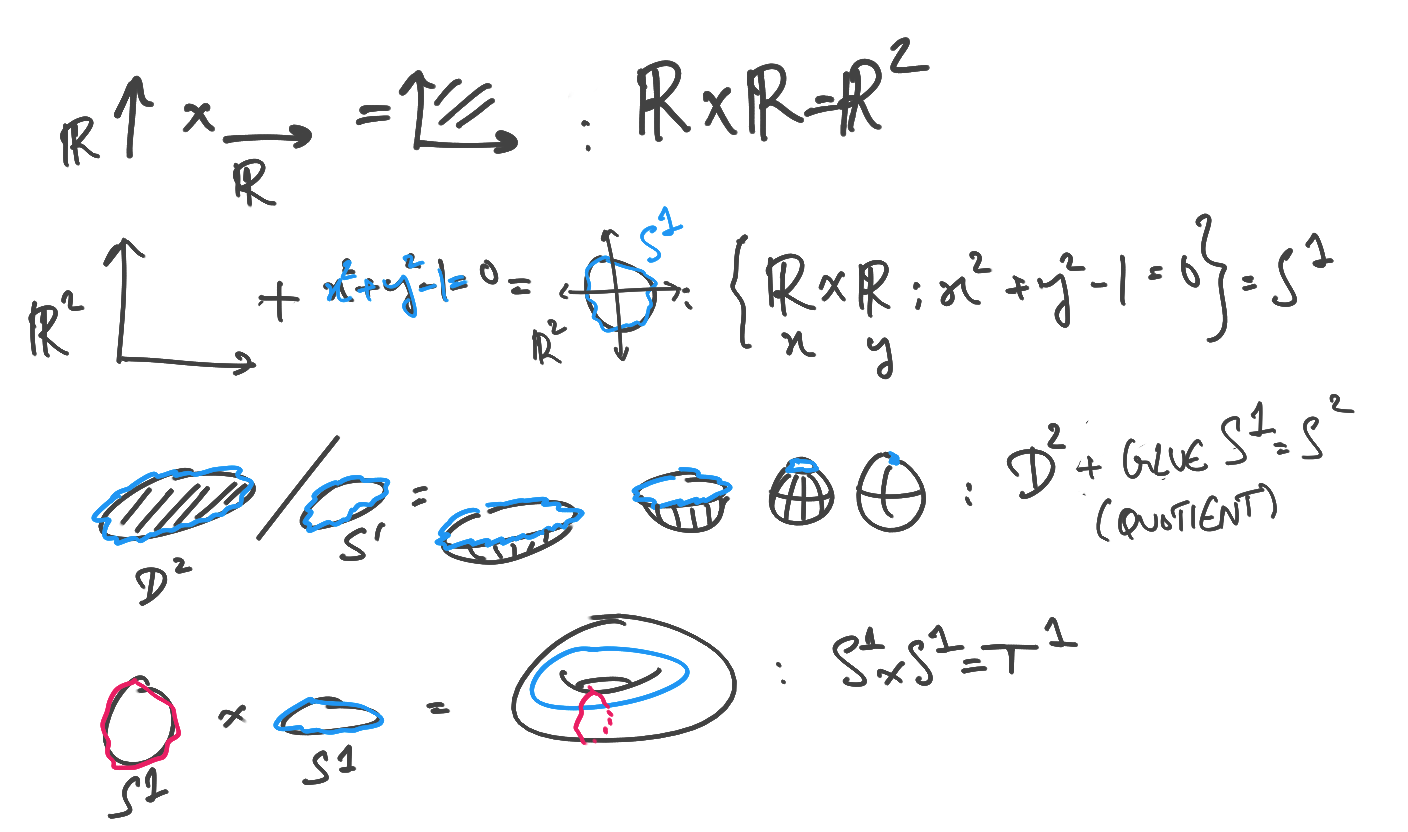 ℝ × ℝ = : ℝ × ℝ = ℝ²
ℝ² + x² + y² - 1 = 0 = ℝ² S¹ : { ℝ × ℝ ; x² + y² - 1 = 0 } = S¹
x y
D² / S¹ = : D² + GLUE S¹ = S²
(QUOTIENT)
S¹ × S¹ = : S¹ × S¹ = T¹